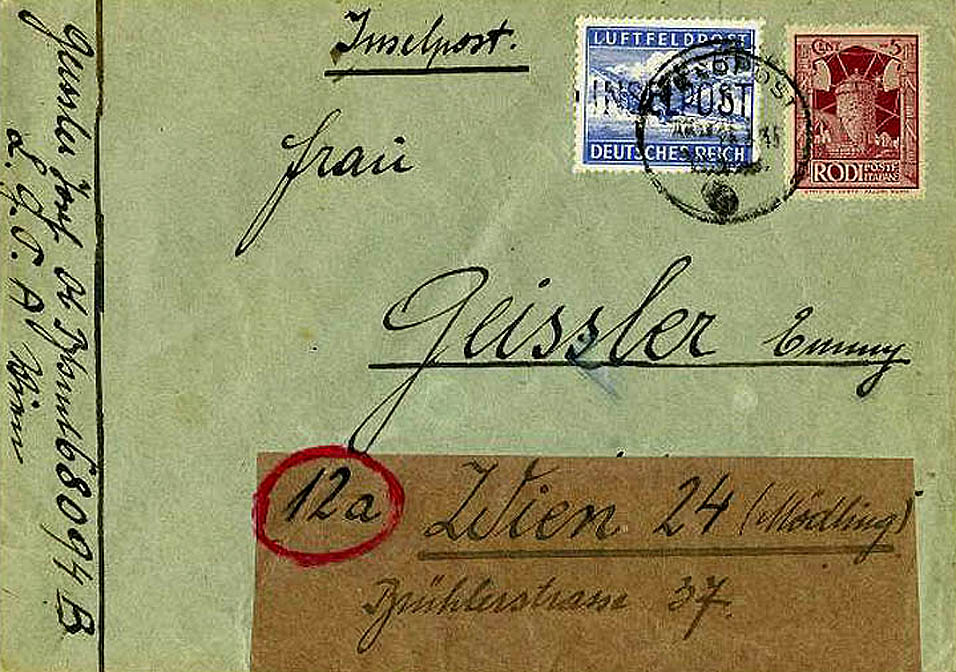 Inselpost.
LUFTFELDPOST
INSELPOST
DEUTSCHES REICH
CENT 5
RODI POSTE ITALIANE
Frau
Geissler Emmy
12a Wien 24 (Mödling)
Brühlerstrasse 37.
68094 B
L. G. P. A. Wien